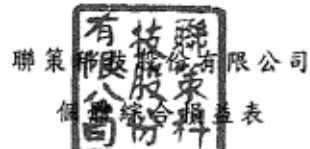 聯策科技股份有限公司
個體綜合損益表
聯策科
技股份
有限公司